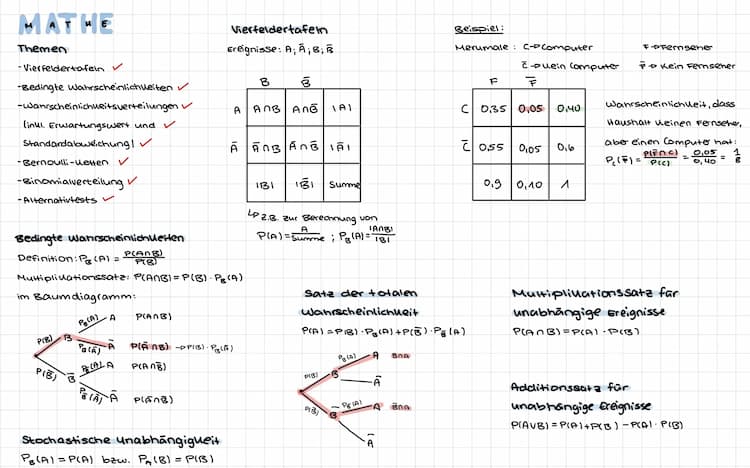 MATHE
Themen:
-Vierfeldertafeln ✓
-Bedingte Wahrscheinlichkeiten ✓
-Wahrscheinlichkeitsverteilungen ✓
(inkl. Erwartungswert und ✓
Standardabweichung) ✓
-Bernoulli-Ketten ✓
-Binomialverteilung ✓
-Alternativtests ✓
Vierfeldertafeln
Ereignisse: A; Ā; B; B̄
B B̄
A A∩B A∩B̄ |A|
Ā Ā∩B Ā∩B̄ |Ā|
|B| |B̄| Summe
↳ z.B. zur Berechnung von
P(A) = A/Summe ; P_B(A) = |A∩B|/|B|
Beispiel:
Merkmale: C→Computer F→Fernseher
C̄→kein Computer F̄→kein Fernseher
F F̄
C 0,35 0,05 0,40
C̄ 0,55 0,05 0,6
0,9 0,10 1
Wahrscheinlichkeit, dass
Haushalt keinen Fernseher,
aber einen Computer hat:
P_C(F̄) = P(F̄∩C)/P(C) = 0,05/0,40 = 1/8
Bedingte Wahrscheinlichkeiten
Definition: P_B(A) = P(A∩B)/P(B)
Multiplikationssatz: P(A∩B) = P(B) · P_B(A)
im Baumdiagramm:
P_B(A) A P(A∩B)
P(B) B
P_B(Ā) Ā P(Ā∩B) → P(B) · P_B(Ā)
P_B̄(A) A P(A∩B̄)
P(B̄) B̄
P_B̄(Ā) Ā P(Ā∩B̄)
Stochastische Unabhängigkeit
P_B(A) = P(A) bzw. P_A(B) = P(B)
Satz der totalen
Wahrscheinlichkeit
P(A) = P(B) · P_B(A) + P(B̄) · P_B̄(A)
P_B(A) A B∩A
P(B) B
Ā
P_B̄(A) A B̄∩A
P(B̄) B̄
Ā
Multiplikationssatz für
unabhängige Ereignisse
P(A∩B) = P(A) · P(B)
Additionssatz für
unabhängige Ereignisse
P(A∪B) = P(A) + P(B) - P(A) · P(B)